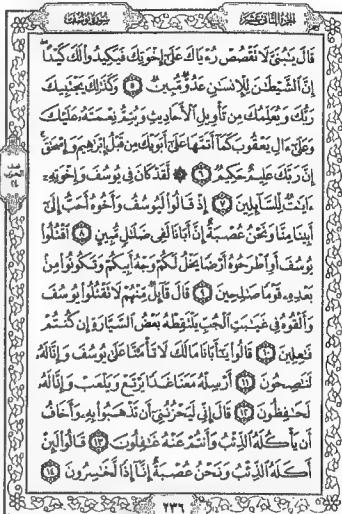 سورة يوسف
الجزء الثاني عشر
قَالَ يَـٰبُنَىَّ لَا تَقْصُصْ رُءْيَاكَ عَلَىٰٓ إِخْوَتِكَ فَيَكِيدُوا۟ لَكَ كَيْدًا ۖ
إِنَّ ٱلشَّيْطَـٰنَ لِلْإِنسَـٰنِ عَدُوٌّ مُّبِينٌ ٥ وَكَذَٰلِكَ يَجْتَبِيكَ
رَبُّكَ وَيُعَلِّمُكَ مِن تَأْوِيلِ ٱلْأَحَادِيثِ وَيُتِمُّ نِعْمَتَهُۥ عَلَيْكَ
وَعَلَىٰٓ ءَالِ يَعْقُوبَ كَمَآ أَتَمَّهَا عَلَىٰٓ أَبَوَيْكَ مِن قَبْلُ إِبْرَٰهِيمَ وَإِسْحَـٰقَ ۚ
إِنَّ رَبَّكَ عَلِيمٌ حَكِيمٌ ٦ ۞ لَّقَدْ كَانَ فِى يُوسُفَ وَإِخْوَتِهِۦٓ
ءَايَـٰتٌ لِّلسَّآئِلِينَ ٧ إِذْ قَالُوا۟ لَيُوسُفُ وَأَخُوهُ أَحَبُّ إِلَىٰٓ
أَبِينَا مِنَّا وَنَحْنُ عُصْبَةٌ إِنَّ أَبَانَا لَفِى ضَلَـٰلٍ مُّبِينٍ ٨ ٱقْتُلُوا۟
يُوسُفَ أَوِ ٱطْرَحُوهُ أَرْضًا يَخْلُ لَكُمْ وَجْهُ أَبِيكُمْ وَتَكُونُوا۟ مِنۢ
بَعْدِهِۦ قَوْمًا صَـٰلِحِينَ ٩ قَالَ قَآئِلٌ مِّنْهُمْ لَا تَقْتُلُوا۟ يُوسُفَ
وَأَلْقُوهُ فِى غَيَـٰبَتِ ٱلْجُبِّ يَلْتَقِطْهُ بَعْضُ ٱلسَّيَّارَةِ إِن كُنتُمْ
فَـٰعِلِينَ ١٠ قَالُوا۟ يَـٰٓأَبَانَا مَا لَكَ لَا تَأْمَ۫نَّا عَلَىٰ يُوسُفَ وَإِنَّا لَهُۥ
لَنَـٰصِحُونَ ١١ أَرْسِلْهُ مَعَنَا غَدًا يَرْتَعْ وَيَلْعَبْ وَإِنَّا لَهُۥ
لَحَـٰفِظُونَ ١٢ قَالَ إِنِّى لَيَحْزُنُنِىٓ أَن تَذْهَبُوا۟ بِهِۦ وَأَخَافُ
أَن يَأْكُلَهُ ٱلذِّئْبُ وَأَنتُمْ عَنْهُ غَـٰفِلُونَ ١٣ قَالُوا۟ لَئِنْ
أَكَلَهُ ٱلذِّئْبُ وَنَحْنُ عُصْبَةٌ إِنَّآ إِذًا لَّخَـٰسِرُونَ ١٤
٢٣٦